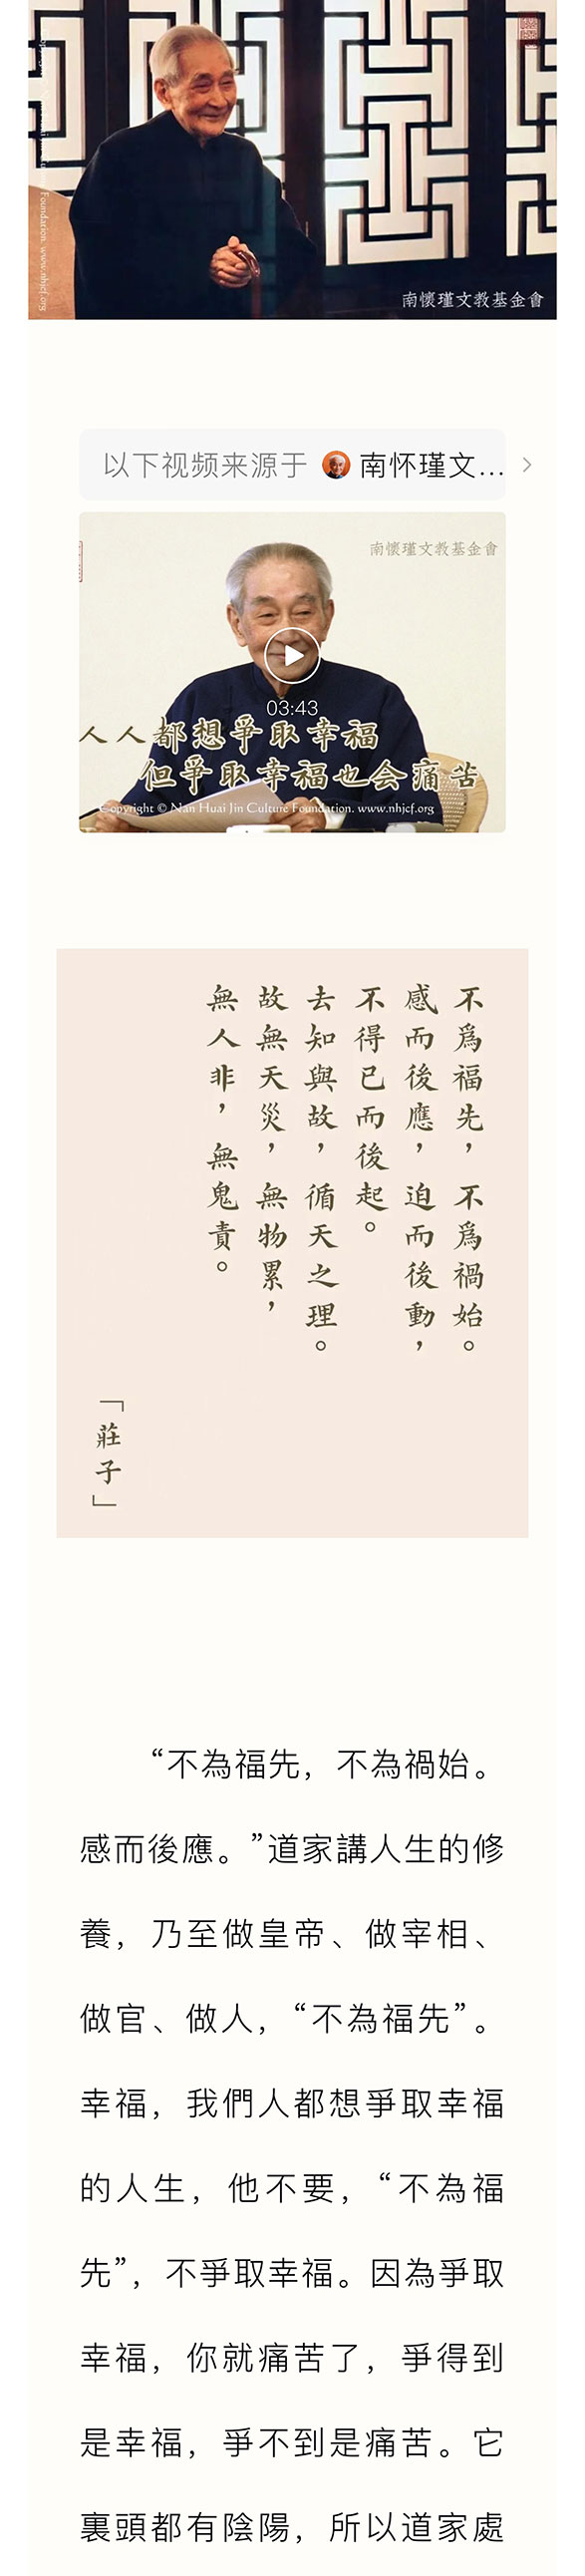 Foundation. www.nhjcf.org
南懷瑾文教基金會
以下视频来源于 南怀瑾文...
南懷瑾文教基金會
03:43
人人都想爭取幸福
但爭取幸福也会痛苦
Copyright © Nan Huai Jin Culture Foundation. www.nhjcf.org
不爲福先，不爲禍始。
感而後應，迫而後動，
不得已而後起。
去知與故，循天之理。
故無天災，無物累，
無人非，無鬼責。
「莊子」
“不為福先，不為禍始。
感而後應。”道家講人生的修
養，乃至做皇帝、做宰相、
做官、做人，“不為福先”。
幸福，我們人都想爭取幸福
的人生，他不要，“不為福
先”，不爭取幸福。因為爭取
幸福，你就痛苦了，爭得到
是幸福，爭不到是痛苦。它
裏頭都有陰陽，所以道家處